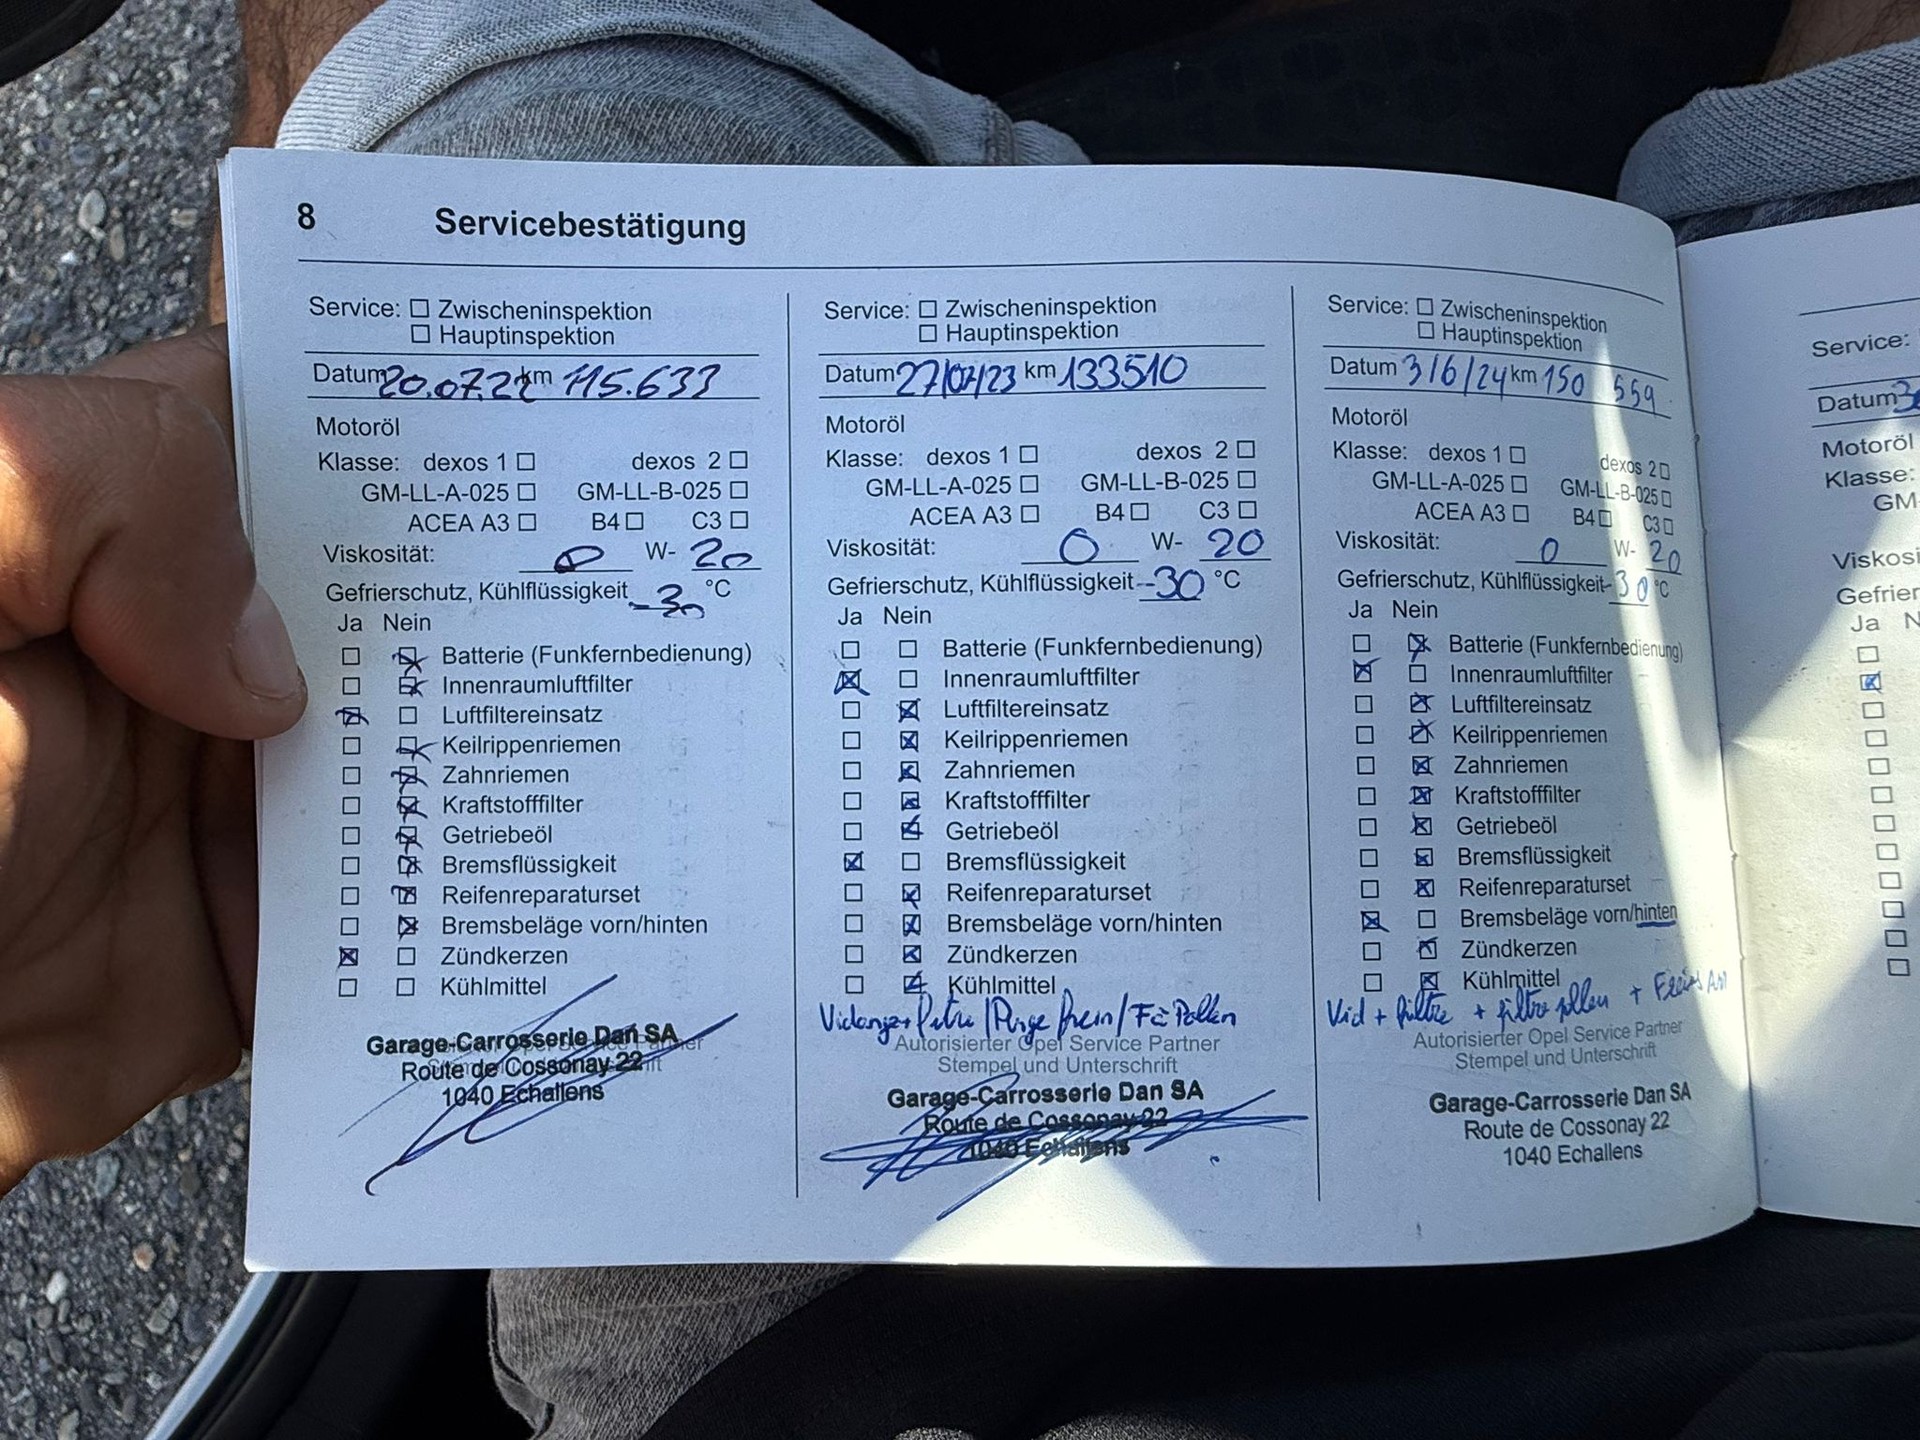 8 Servicebestätigung
Service: Zwischeninspektion
Hauptinspektion
Datum 20.07.22 km 115.633
Motoröl
Klasse: dexos 1 dexos 2
GM-LL-A-025 GM-LL-B-025
ACEA A3 B4 C3
Viskosität: 0 W- 20
Gefrierschutz, Kühlflüssigkeit -30 °C
Ja Nein
Batterie (Funkfernbedienung)
Innenraumluftfilter
Luftfiltereinsatz
Keilrippenriemen
Zahnriemen
Kraftstofffilter
Getriebeöl
Bremsflüssigkeit
Reifenreparaturset
Bremsbeläge vorn/hinten
Zündkerzen
Kühlmittel
Garage-Carrosserie Dan SA
Route de Cossonay 22
1040 Echallens
Service: Zwischeninspektion
Hauptinspektion
Datum 27/07/23 km 133510
Motoröl
Klasse: dexos 1 dexos 2
GM-LL-A-025 GM-LL-B-025
ACEA A3 B4 C3
Viskosität: 0 W- 20
Gefrierschutz, Kühlflüssigkeit -30 °C
Ja Nein
Batterie (Funkfernbedienung)
Innenraumluftfilter
Luftfiltereinsatz
Keilrippenriemen
Zahnriemen
Kraftstofffilter
Getriebeöl
Bremsflüssigkeit
Reifenreparaturset
Bremsbeläge vorn/hinten
Zündkerzen
Kühlmittel
Vidange+ /Purge frein/
Autorisierter Opel Service Partner
Stempel und Unterschrift
Garage-Carrosserie Dan SA
Route de Cossonay 22
1040 Echallens
Service: Zwischeninspektion
Hauptinspektion
Datum 3/6/24 km 150 559
Motoröl
Klasse: dexos 1 dexos 2
GM-LL-A-025 GM-LL-B-025
ACEA A3 B4 C3
Viskosität: 0 W- 20
Gefrierschutz, Kühlflüssigkeit -30 °C
Ja Nein
Batterie (Funkfernbedienung)
Innenraumluftfilter
Luftfiltereinsatz
Keilrippenriemen
Zahnriemen
Kraftstofffilter
Getriebeöl
Bremsflüssigkeit
Reifenreparaturset
Bremsbeläge vorn/hinten
Zündkerzen
Kühlmittel
Vid + filtre + filtre pollen + Freins AR
Autorisierter Opel Service Partner
Stempel und Unterschrift
Garage-Carrosserie Dan SA
Route de Cossonay 22
1040 Echallens
Service:
Datum
Motoröl
Klasse:
GM-
Viskosi
Gefrier
Ja N